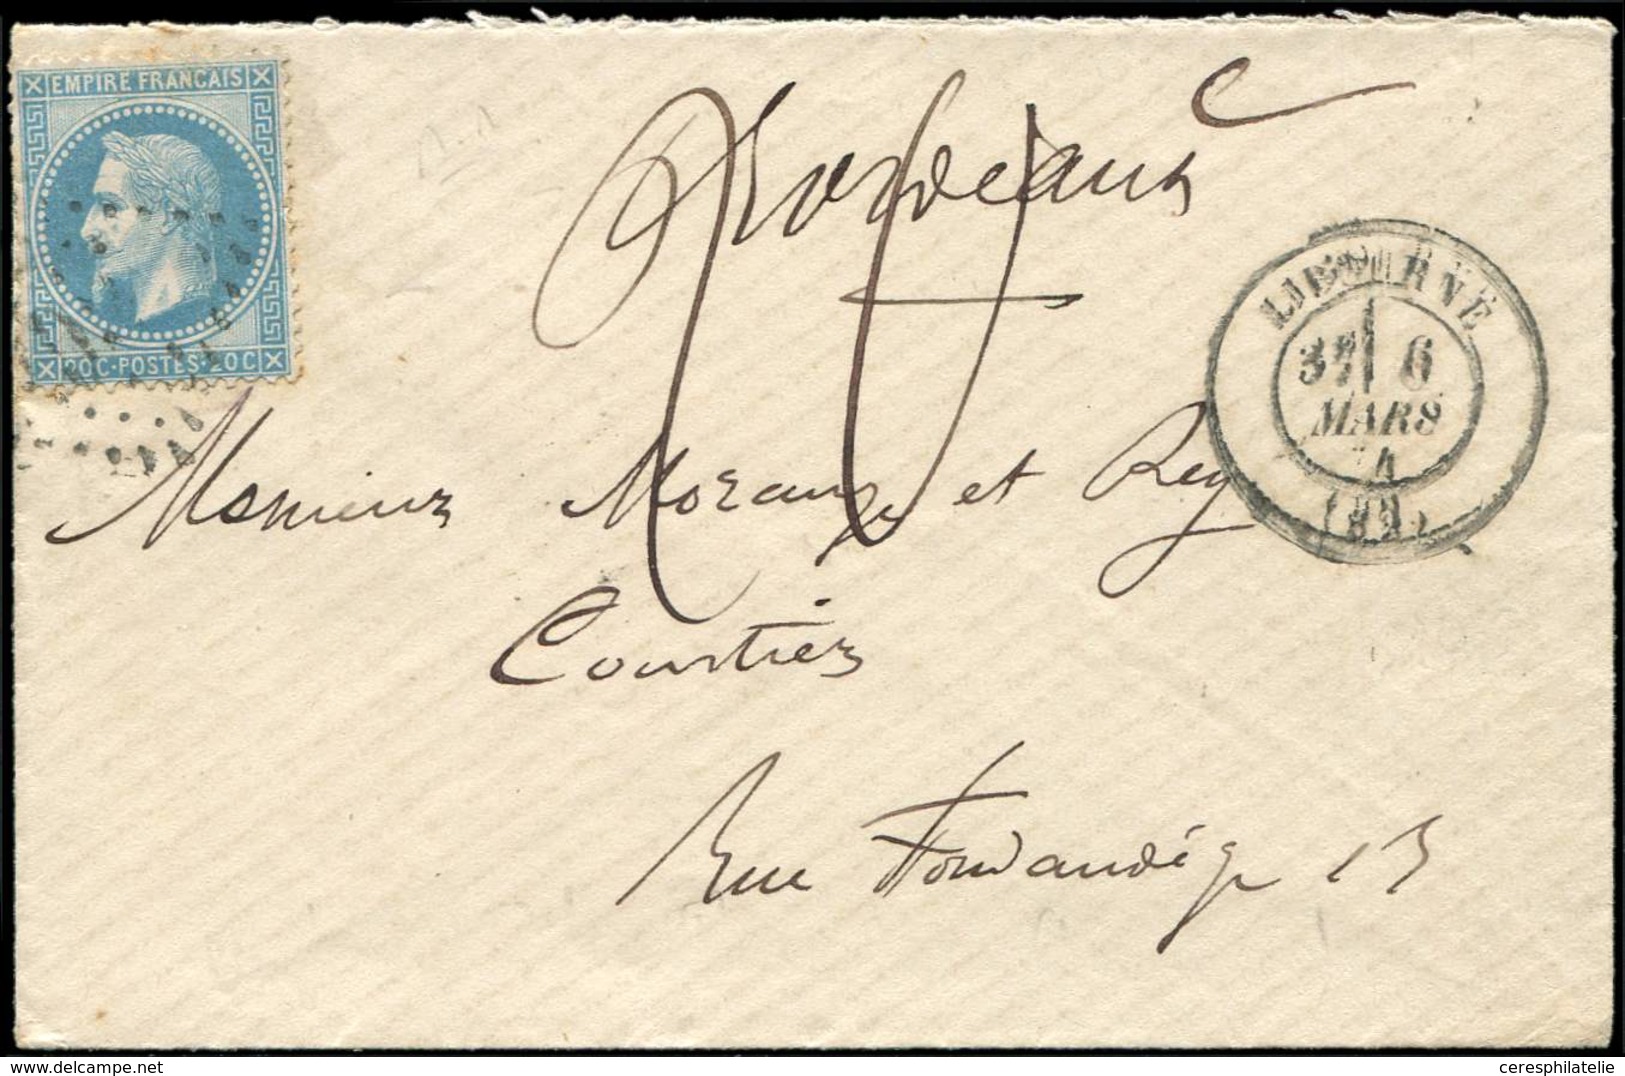 EMPIRE FRANCAIS
20C·POSTES·20C
Bordeaux
LIBOURNE
3E 6
MARS
74
(32)
Monsieur Morange et Rey
Courtier
Rue Fondaudège 13
ceresphilatelie
delcampe.net